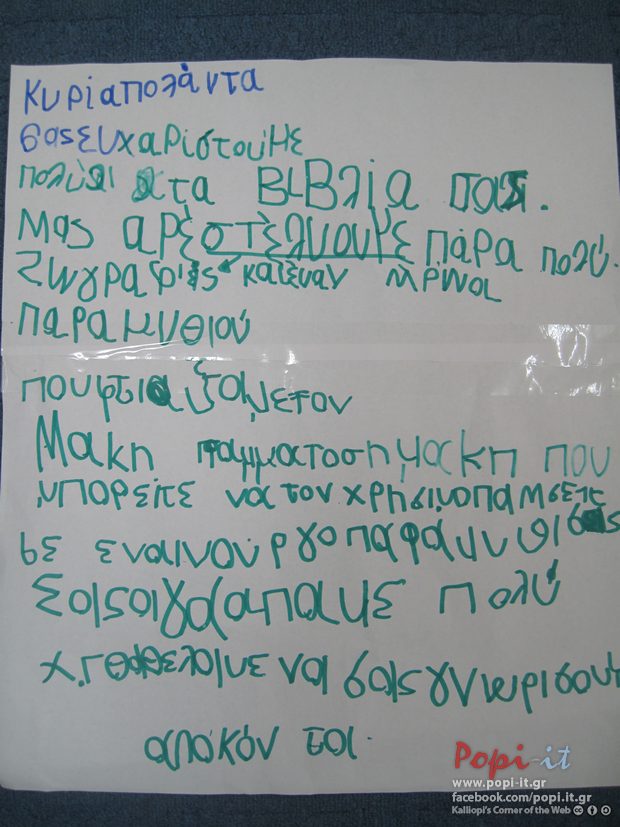 Κυριαπολάντα
σαςευχαρίστούμε
πολύ στα βιβλία σας.
Μας αρέστέλνουμε πάρα πολύ.
Ζωγραφιές καιέναν ήρωα
παραμυθιού
πουφτιάξαμετον
Μακη γραμματοσημακη που
μπορείτε να τον χρησιμοποιήσετε
σε έναινούργοπαραμυθισας
Σαςαγαπαμε πολύ
Χ.Γθαθελαμε να σαςγνωρισουμ
απόκόν τα.
Popi-it
www.popi-it.gr
facebook.com/popi.it.gr
Kalliopi's Corner of the Web